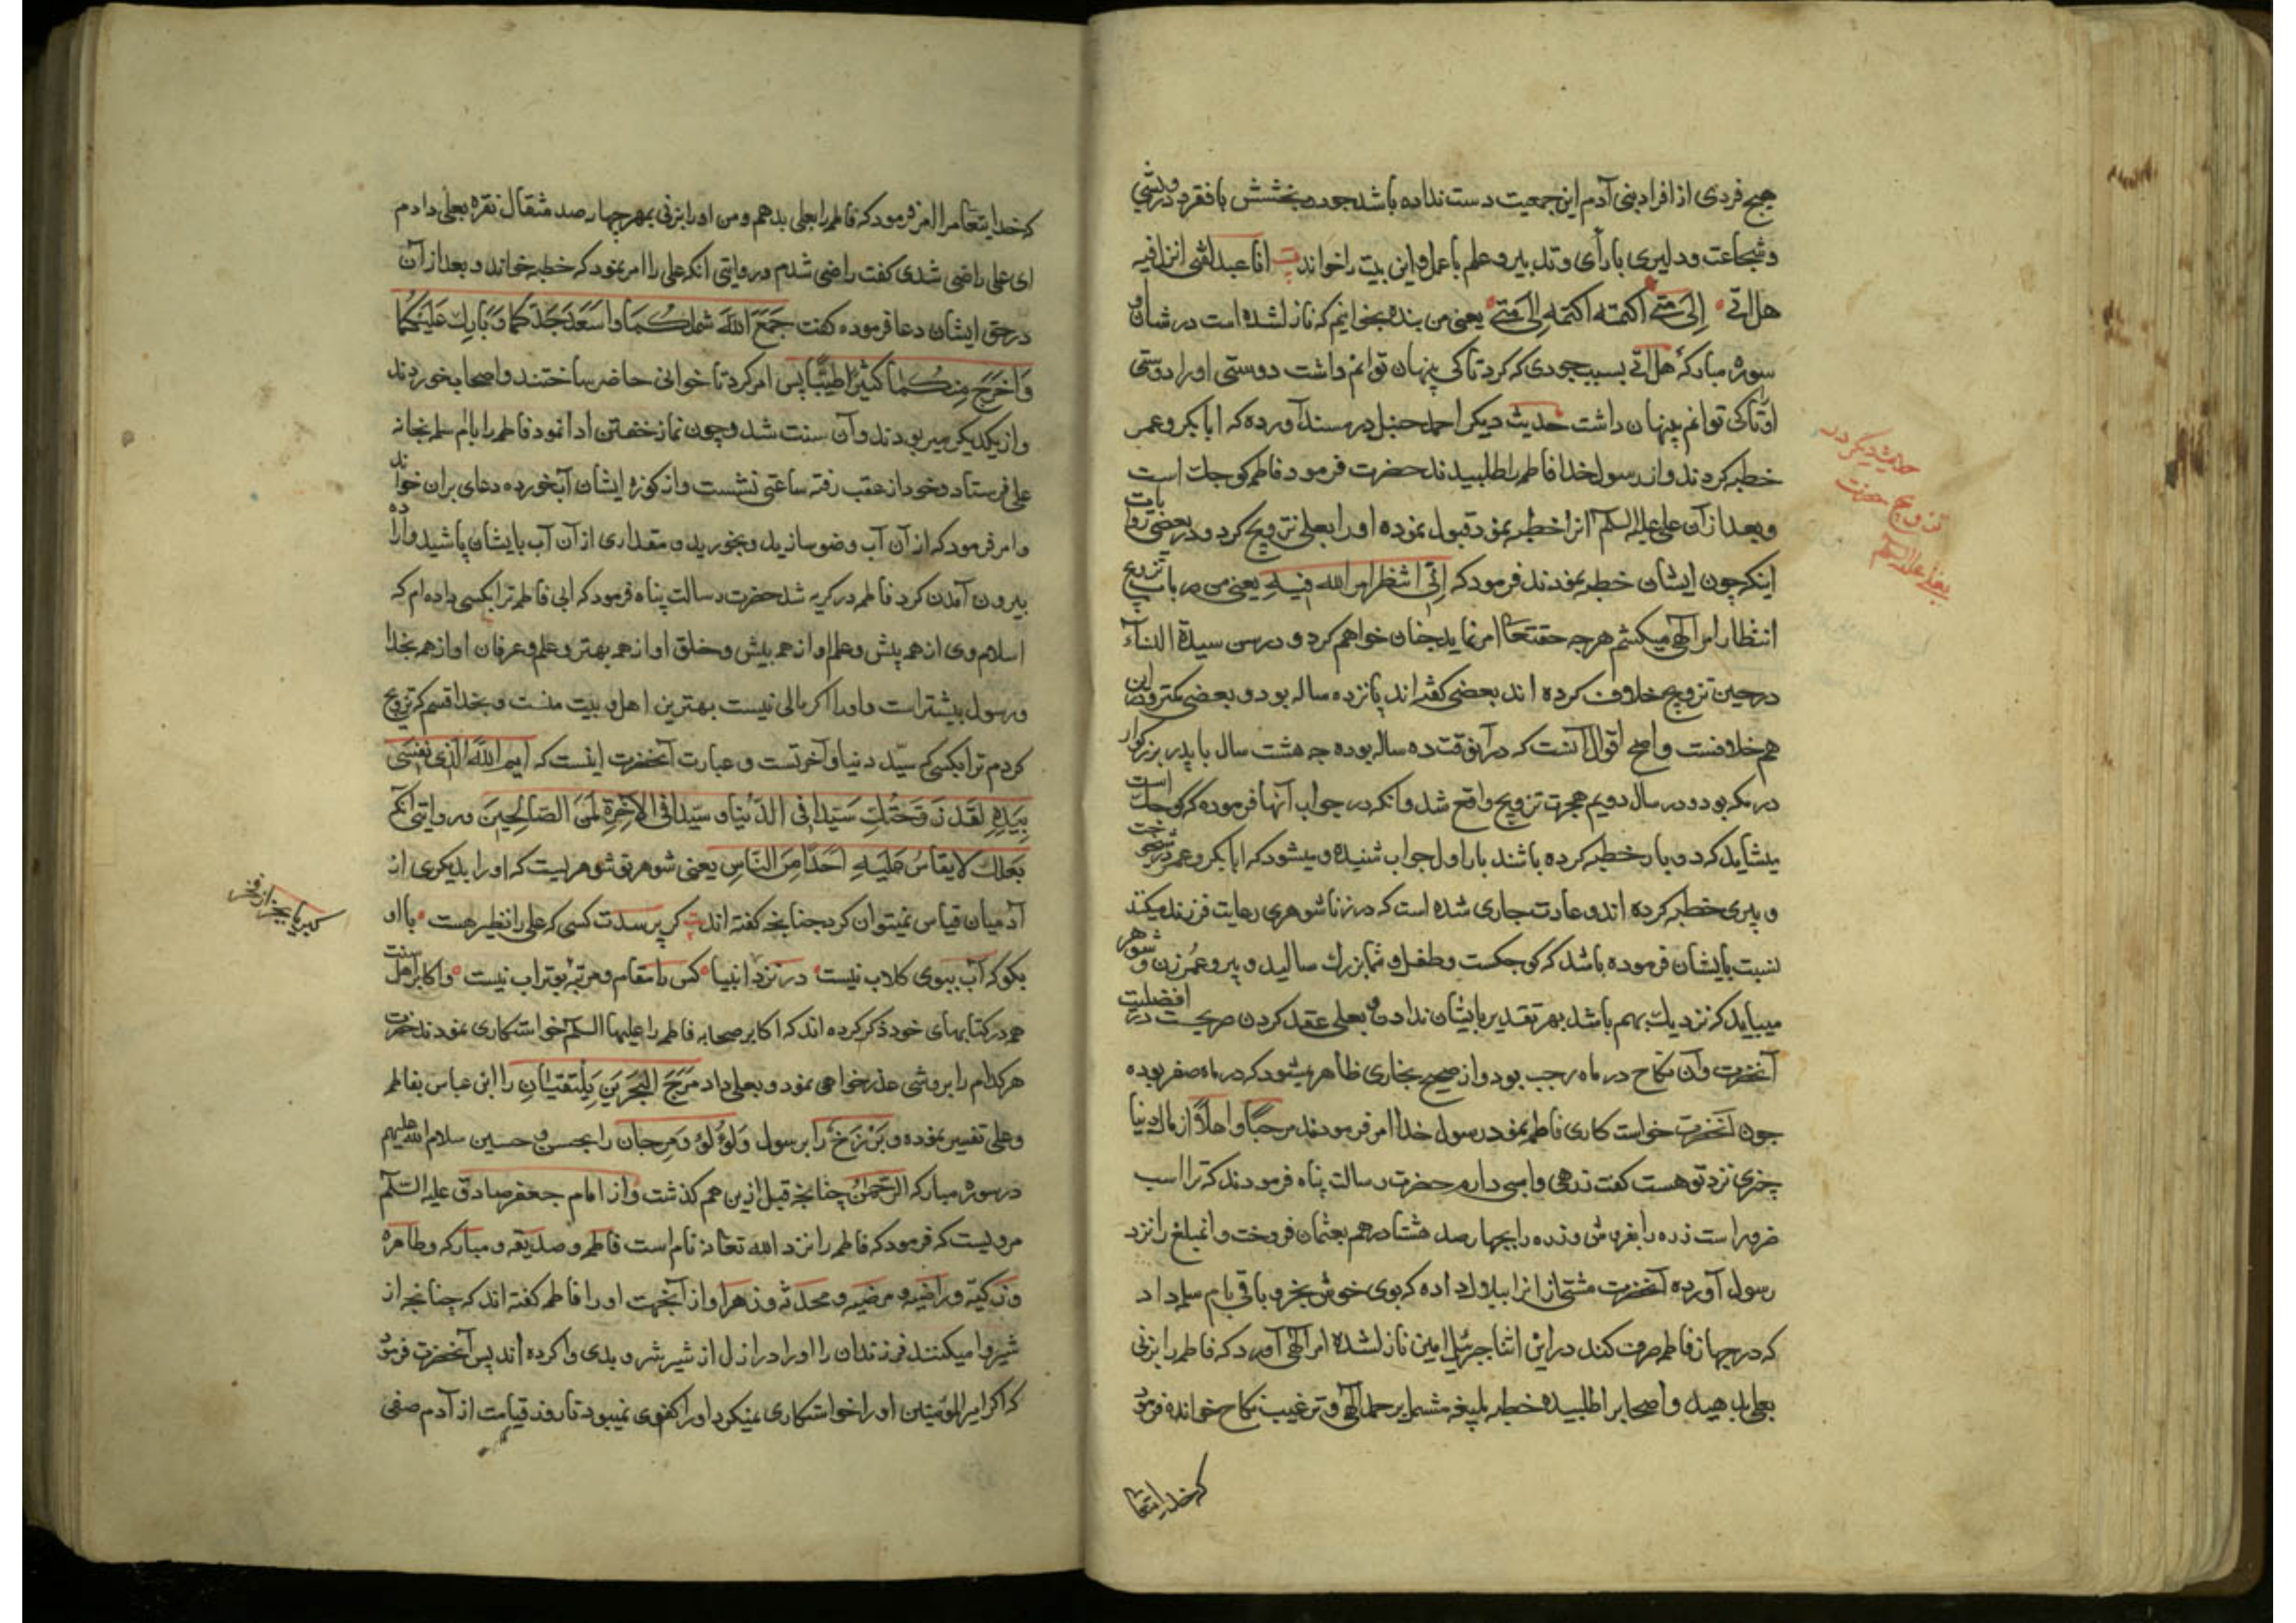 هیچ فردی از افراد بنی آدم این جمعیت دست نداده باشد جود و بخشش با فقر و درویشی
و شجاعت و دلیری با رأی و تدبیر و علم با عمل و این بیت را خواند انا عبد لفتی انزل فیه
هل اتی الی متی اکتمه اکتمه الی متی یعنی من بنده جوانیم که نازل شده است در شان او
سوره مبارکهٔ هل اتی بسبب جودی که کرد تا کی پنهان توانم داشت دوستی او را دوستی
او تا کی توانم پنهان داشت حدیث دیکر احمد حنبل در مسند آورده که ابابکر و عمر
خطبه کردند و از رسول خدا فاطمه را طلبیدند حضرت فرمود فاطمه کوجک است
و بعد از آن علی علیه السلام انرا خطبه نمود قبول نموده او را بعلی تزویج کرد و در بعضی روایت
اینکه چون ایشان خطبه نمودند فرمود که انی انتظر امر الله فیه یعنی من در باب تزویج
انتظار امر الهی میکشم هرجه حقتعا امر نماید جنان خواهم کرد و در سن سیدة النساء
در حین تزویج خلاف کرده اند بعضی کفته اند پانزده ساله بود و بعضی کمتر و در این
هم خلافست و اصح اقوال آنست که در آنوقت ده ساله بوده جه هشت سال با پدر بزرکوار
در مکه بود و در سال دویم هجرت تزویج واقع شد و آنکه در جواب آنها فرموده که کوجک است
میشاید که دو بار خطبه کرده باشند بار اول جواب شنیده و میشود که ابابکر و عمر در
و پیری خطبه کرده اند و عادت جاری شده است که در زناشوهری رعایت فرزند میکنند
نسبت بایشان فرموده باشد که کوجکست و طفل و شما بزرک سالید و پیر و عمر زن و شوهر
میباید که نزدیک بهم باشد بهر تقدیر بایشان ندادن و بعلی عقد کردن صریحست در افضلیت
آنحضرت و آن نکاح در ماه رجب بود و از صحیح بخاری ظاهر میشود که در ماه صفر بوده
جون آنحضرت خواستکاری فاطمه نمود رسول خدا امر فرمودند مرحبا و اهلا از مال دنیا
چیزی نزد تو هست کفت زرهی و اسبی دارم حضرت رسالت پناه فرمودند که ترا اسب
ضرور است زره را بفروش و زره را بجهارصد هشتاد درهم بعثمان فروخت و انمبلغ را نزد
رسول آورده آنحضرت مشتی از انرا ببلال داده که بوی خوش بخر و باقی بام سلمه داد
که در جهاز فاطمه صرف کند در این اثنا جبرئیل امین نازل شده امر الهی آورد که فاطمه را بزنی
بعلی بدهید و اصحابرا طلبیده خطبه بلیغه مشتمل بر حمد الهی و ترغیب نکاح خوانده فرمود
که خدایتعا
حدیث دیکر در
تزویج حضرت
بعلی علیه السلام
که خدایتعا مرا امر فرمود که فاطمه را بعلی بدهم و من او را بزنی بمهر جهارصد مثقال نقره بعلی دادم
ای علی راضی شدی کفت راضی شدم و روایتی انکه علی را امر نمود که خطبه خواند و بعد از آن
در حق ایشان دعا فرموده کفت جمع الله شملکما و اسعد جدکما و بارک علیکما
و اخرج منکما کثیرا طیبا پس امر کرد تا خوانی حاضر ساختند و اصحاب خوردند
و از یکدیکر میر بودند و آن سنت شد و چون نماز خفتن ادا نمود فاطمه را با ام سلمه بخانه
علی فرستاد و خود از عقب رفته ساعتی نشست و از کوزه ایشان آبخورده دعای بران خواند
و امر فرمود که از آن آب وضو سازید و بخورید و مقداری از آن آب بایشان پاشید و اراده
بیرون آمدن کرد فاطمه در کریه شد حضرت رسالت پناه فرمود که ای فاطمه ترا بکسی داده ام که
اسلام وی از همه پیش و علم او از همه بیش و خلق او از همه بهتر و علم و عرفان او از همه بخدا
و رسول بیشتر است و او را اکر مالی نیست بهترین اهل بیت منست و بخدا قسم که تزویج
کردم ترا بکسی که سید دنیا و آخرتست و عبارت آنحضرت اینست که ایم الله الذی نفسی
بیده لقد زوجتک سیدا فی الدنیا و سیدا فی الاخرة لمن الصالحین و روایتی آنکه
بعلک لا یقاس علیه احدا من الناس یعنی شوهر تو شوهریست که او را بدیکری از
آدمیان قیاس نمیتوان کرد جنانجه کفته اند کر پرسدت کسی که علی را نظیر هست با او
بکو که آب ببوی کلاب نیست در نزد انبیا کس با مقام و مرتبهٔ بوتراب نیست و اکابر اهل سنت
هم در کتابهای خود ذکر کرده اند که اکابر صحابه فاطمه را علیها السلام خواستکاری نمودند حضرت
هر کدام را بروشی عذر خواهی نمود و بعلی داد مرج البحرین یلتقیان را ابن عباس بفاطمه
و علی تفسیر نموده و برزخ را برسول و لؤلؤ و مرجان را بحسن و حسین سلام الله علیهم
در سوره مبارکه الرحمن چنانجه قبل ازین هم کذشت و از امام جعفر صادق علیه السلام
مرویست که فرمود که فاطمه را نزد الله تعا نه نام است فاطمه و صدیقه و مبارکه و طاهره
و زکیه و راضیه و مرضیه و محدثه و زهرا و از آنجهت او را فاطمه کفته اند که چنانجه از
شیر وا میکنند فرزندان را او را در ازل از شیر شر و بدی وا کرده اند پس آنحضرت فرمود
که اکر امیرالمؤمنین او را خواستکاری نمیکرد او را کفوی نمیبود تا روز قیامت از آدم صفی